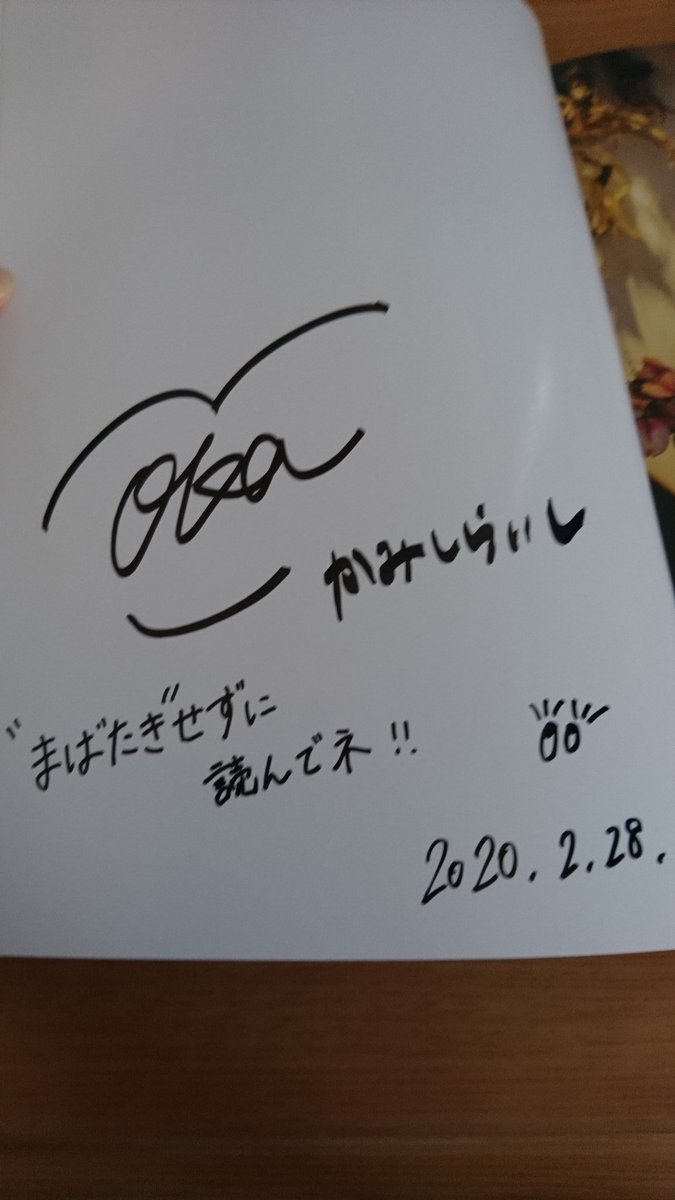 oka
かみしらいし
"まばたき"せずに
読んでネ!!
2020.2.28.